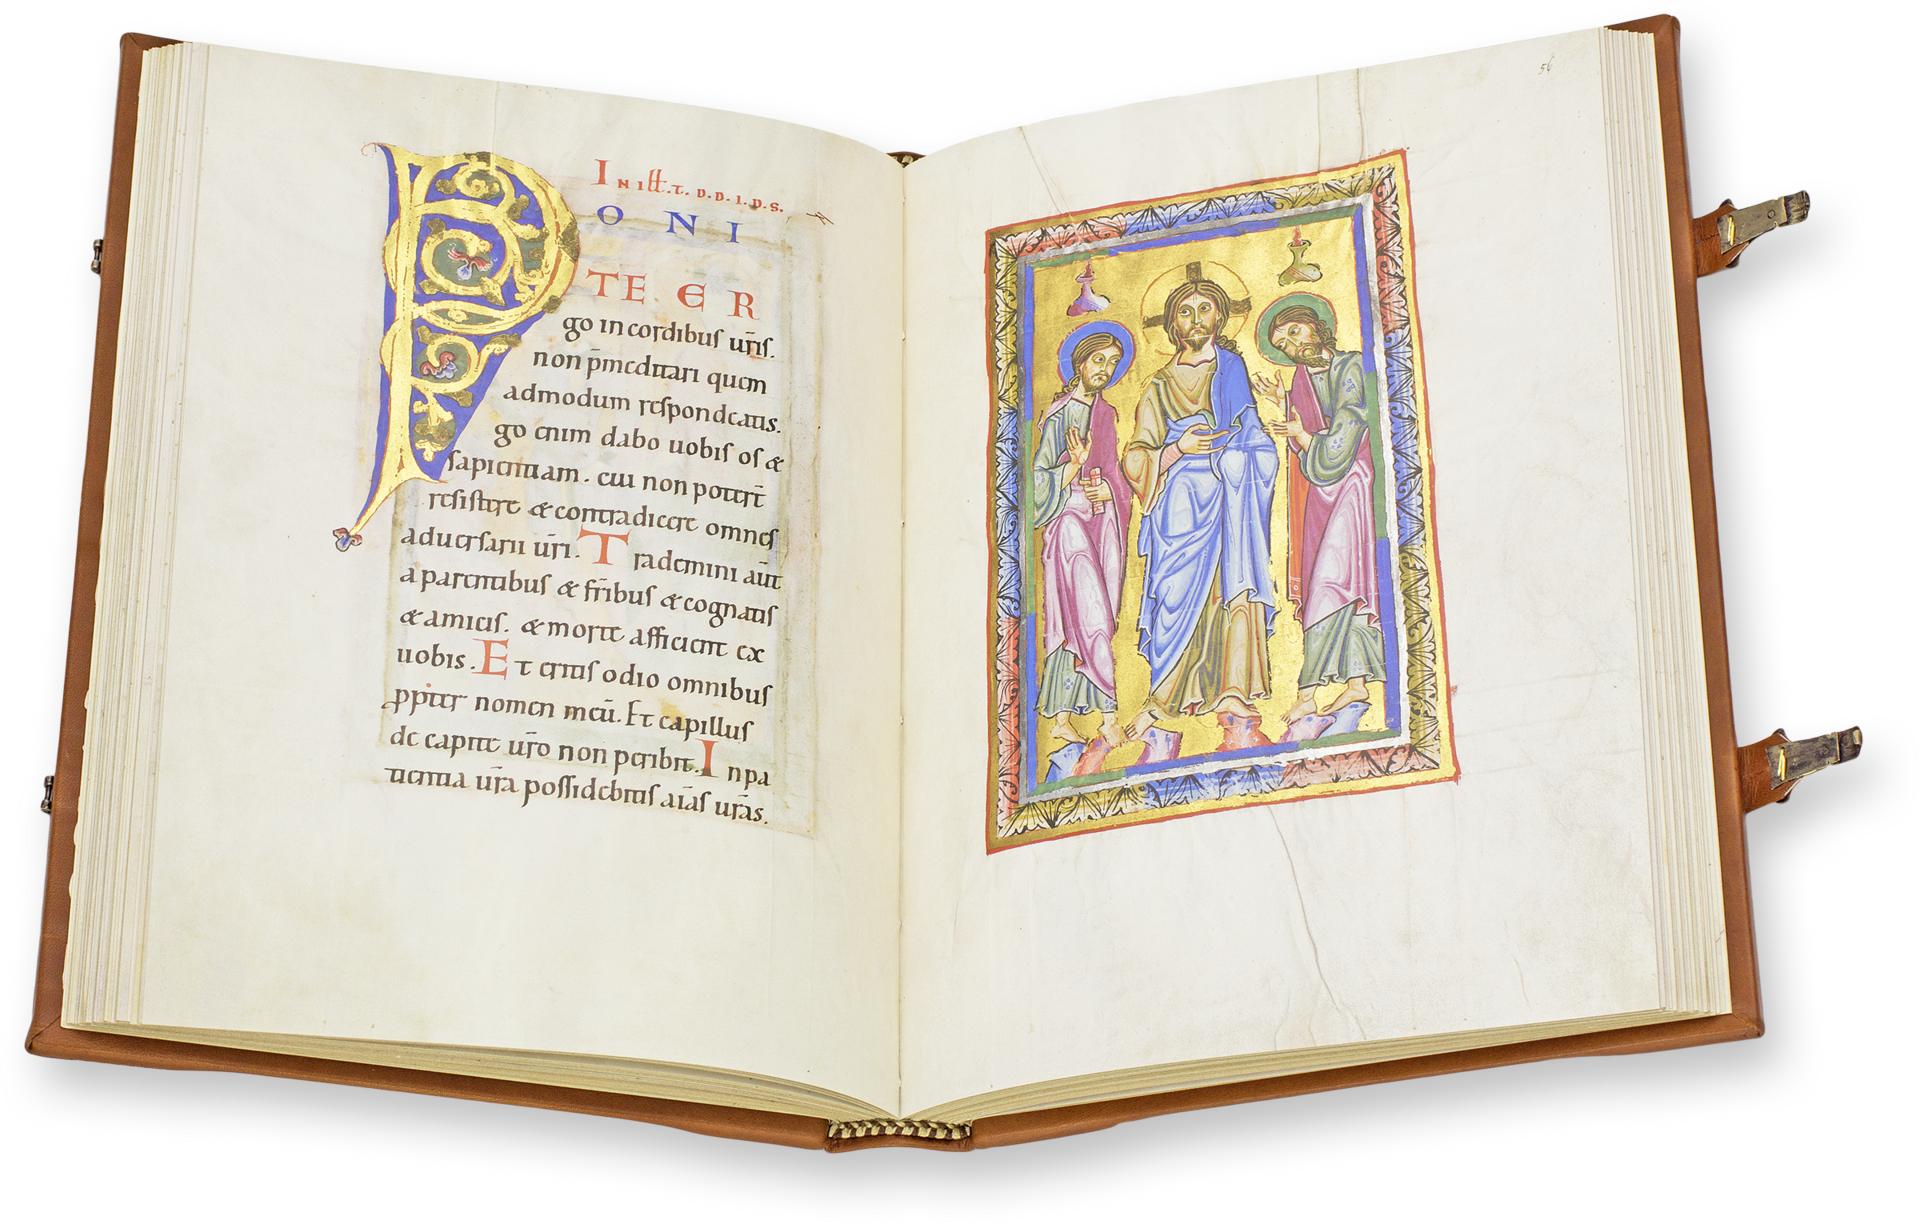 IN ill T. D. D. I. D. S.
PONI
TE ER
go in cordibus ur̅is.
non p̅meditari quem
admodum respondeatis.
go enim dabo uobis os &
sapientiam. cui non potert̅
resistere & contradicere omnes
aduersarii ur̅i. Trademini aut̅
a parentibus & fr̅ibus & cognatis
& amicis. & morte afficient ex
uobis. Et eritis odio omnibus
ꝓpter nomen meu̅. Et capillus
de capite ur̅o non peribit. In pa
tientia ur̅a possidebitis ai̅as ur̅as.
56